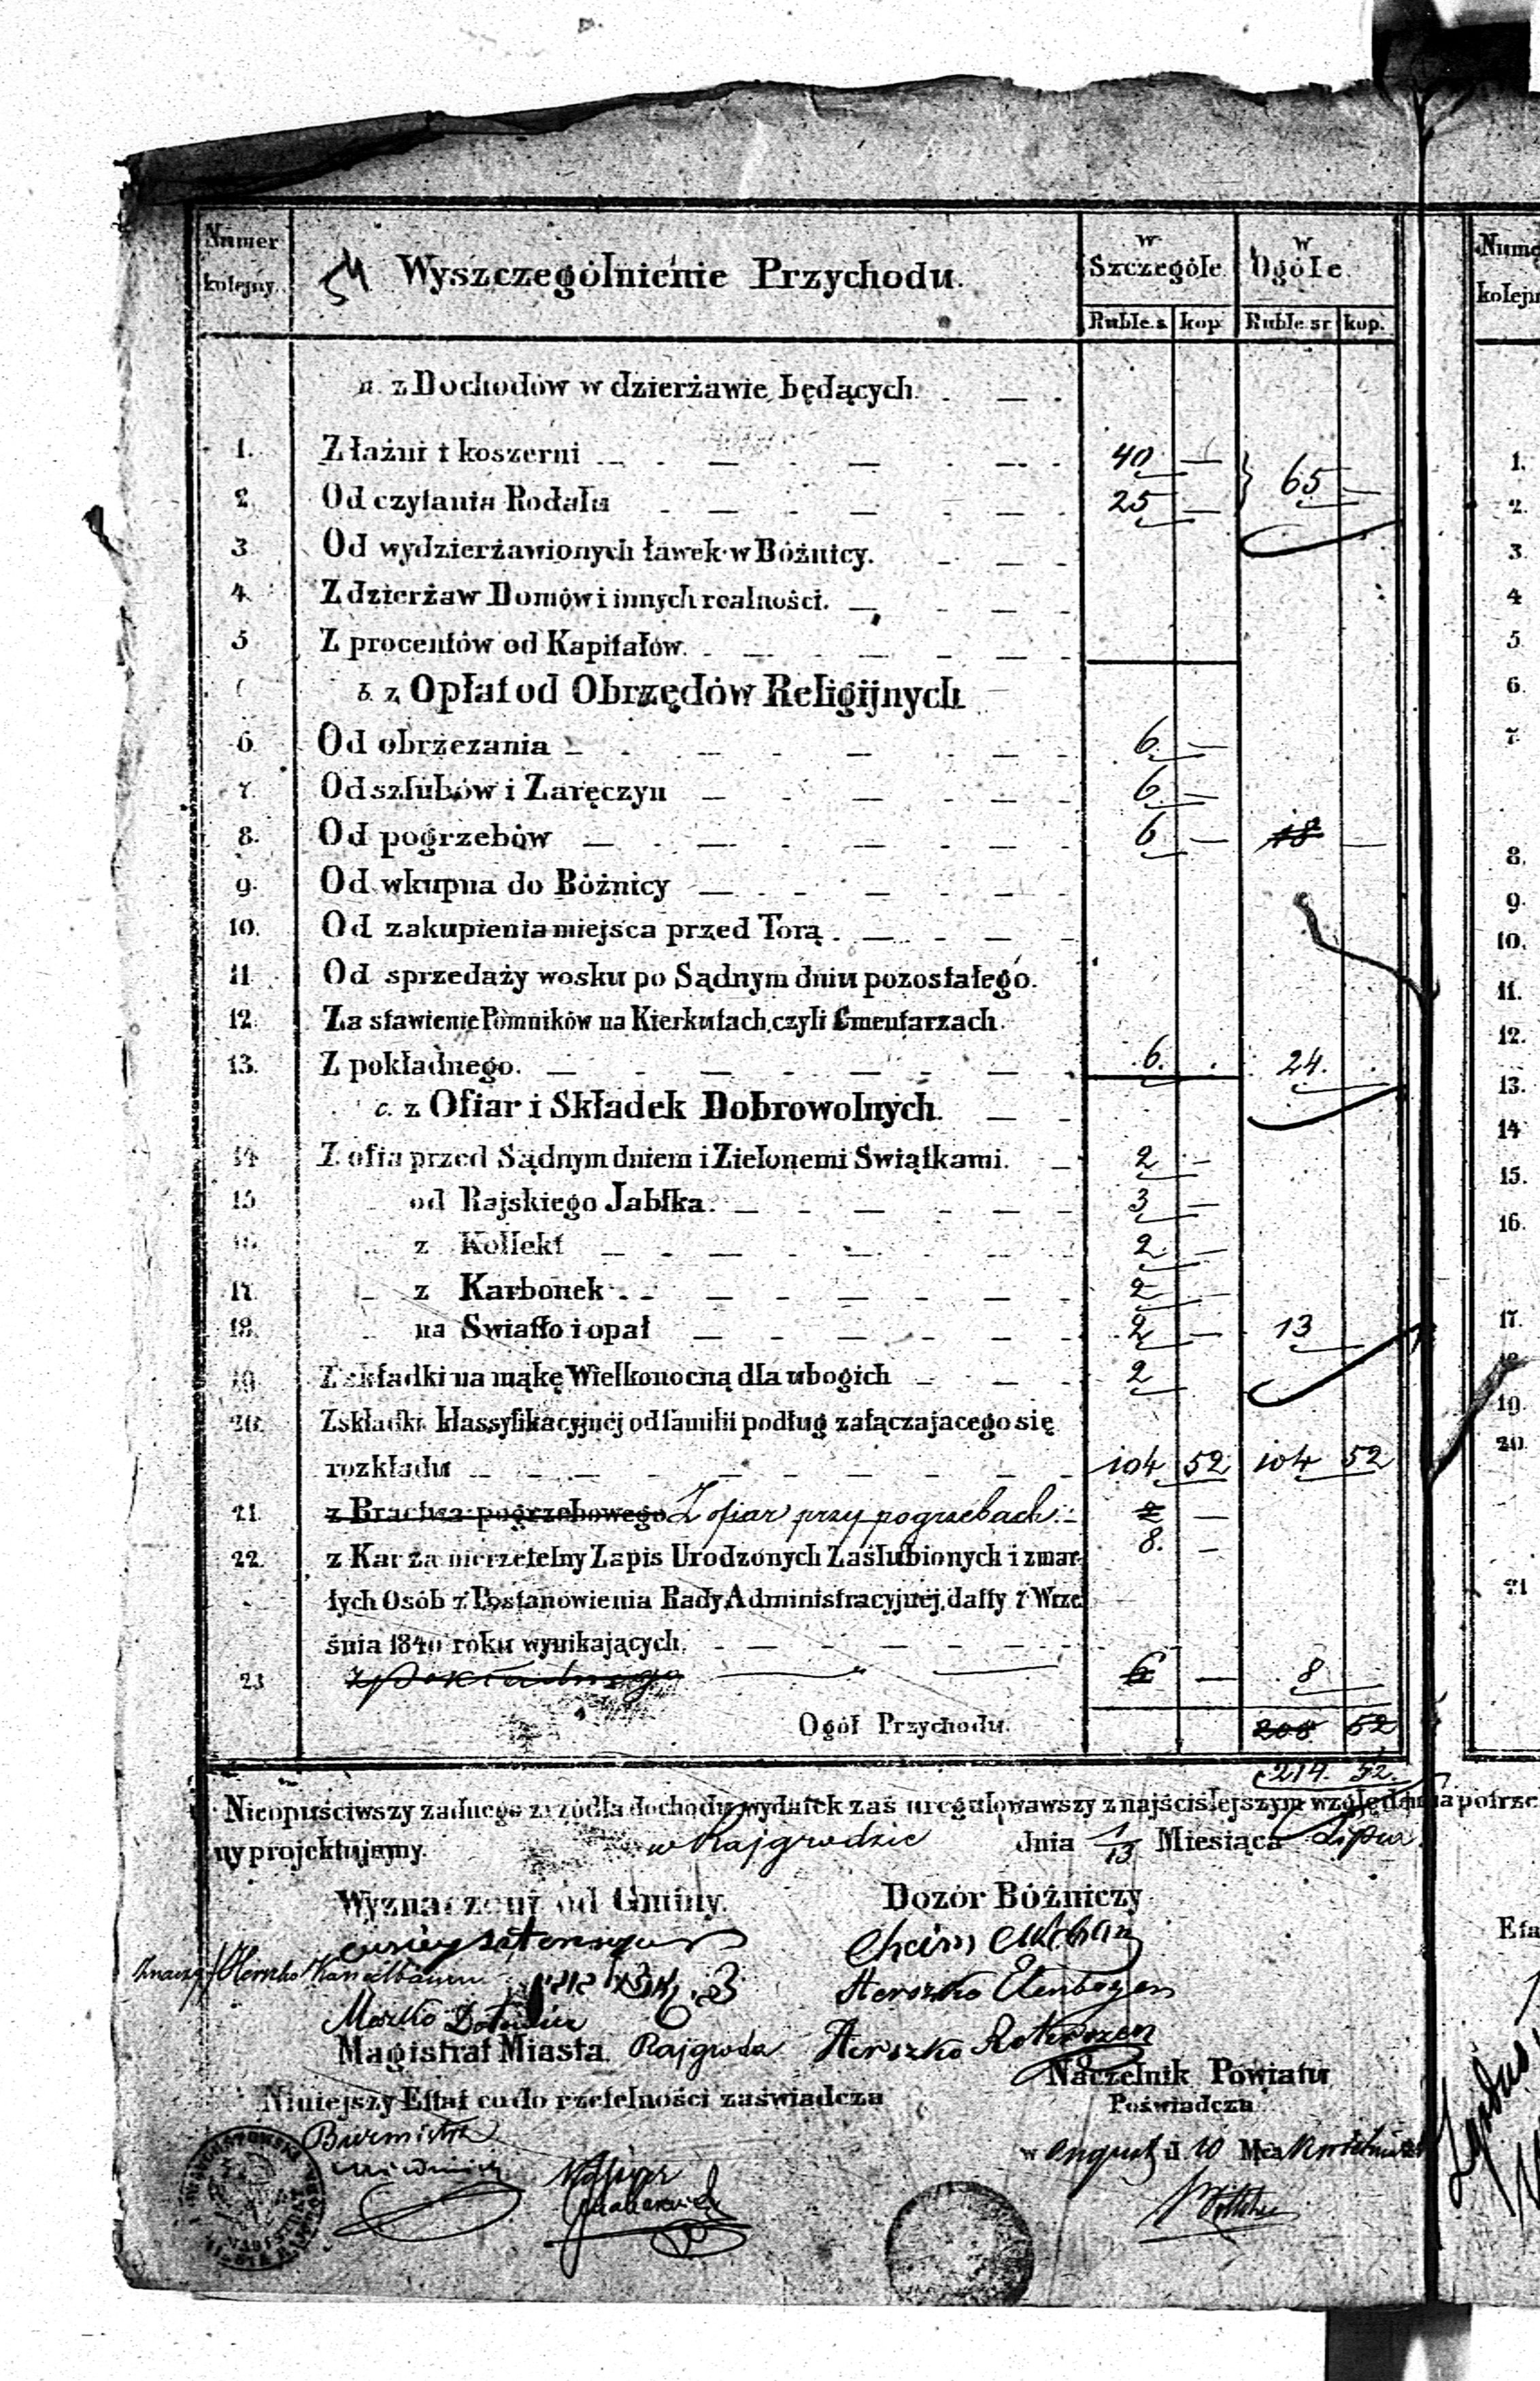 Numer kolejny
Wyszczególnienie Przychodu.
w Szczególe
w Ogóle
Ruble s. kop Ruble sr kop.
a. z Dochodów w dzierżawie będących.
1. Z łaźni i koszerni 40 — } 65 —
2. Od czytania Rodału 25 —
3. Od wydzierżawionych ławek w Bóżnicy.
4. Z dzierżaw Domów i innych realności.
5 Z procentów od Kapitałów.
b. z Opłat od Obrzędów Religijnych
6. Od obrzezania 6. —
7. Od szlubów i Zaręczyn 6. —
8. Od pogrzebów 6 — 18 —
9. Od wkupna do Bóżnicy
10. Od zakupienia miejsca przed Torą.
11 Od sprzedaży wosku po Sądnym dniu pozostałego.
12 Za stawienie Pomników na Kierkutach, czyli Cmentarzach.
13. Z pokładnego. 6. . 24. .
c. z Ofiar i Składek Dobrowolnych.
14 Z ofia przed Sądnym dniem i Zielonemi Swiątkami. 2 —
15 od Rajskiego Jabłka. 3 —
16. z Kollekt 2. —
17 z Karbonek 2 —
18. na Swiatło i opał 2 — 13 —
19 Z składki na mąkę Wielkonocną dla ubogich 2
20. Z składki klassyfikacyjnéj od familii podług załączajacego się
rozkładu 104 52 104 52
21. z Bractwa pogrzebowego Z ofiar przy pogrzebach. 2 —
8. —
22. z Kar za nierzetelny Zapis Urodzonych Zaślubionych i zmar-
łych Osób z Postanowienia Rady Administracyjnej, datty 7 Wrze
śnia 1840 roku wynikających.
23 z pokładnego 6 — 8
Ogół Przychodu. 208 52
214. 52.
Nieopuściwszy żadnego zrzódła dochodu wydatek zaś uregulowawszy z najściślejszym względem na potrze
ny projektujemy. w Rajgrodzie dnia 1/13 Miesiąca Lipca
Wyznaczeni od Gminy. Dozór Bóżniczy
Herszko Etenbogen
Moszko
Magistrat Miasta Rajgroda Herszko
Naczelnik Powiatu
Niniejszy Etat co do rzetelności zaświadcza Poświadcza
Burmistrz
w d. 10 Mca
Kassyer
Numer kolejny
1.
2.
3.
4
5
6.
7.
8.
9.
10.
11.
12.
13.
14
15.
16.
17.
19.
20.
21
Eta